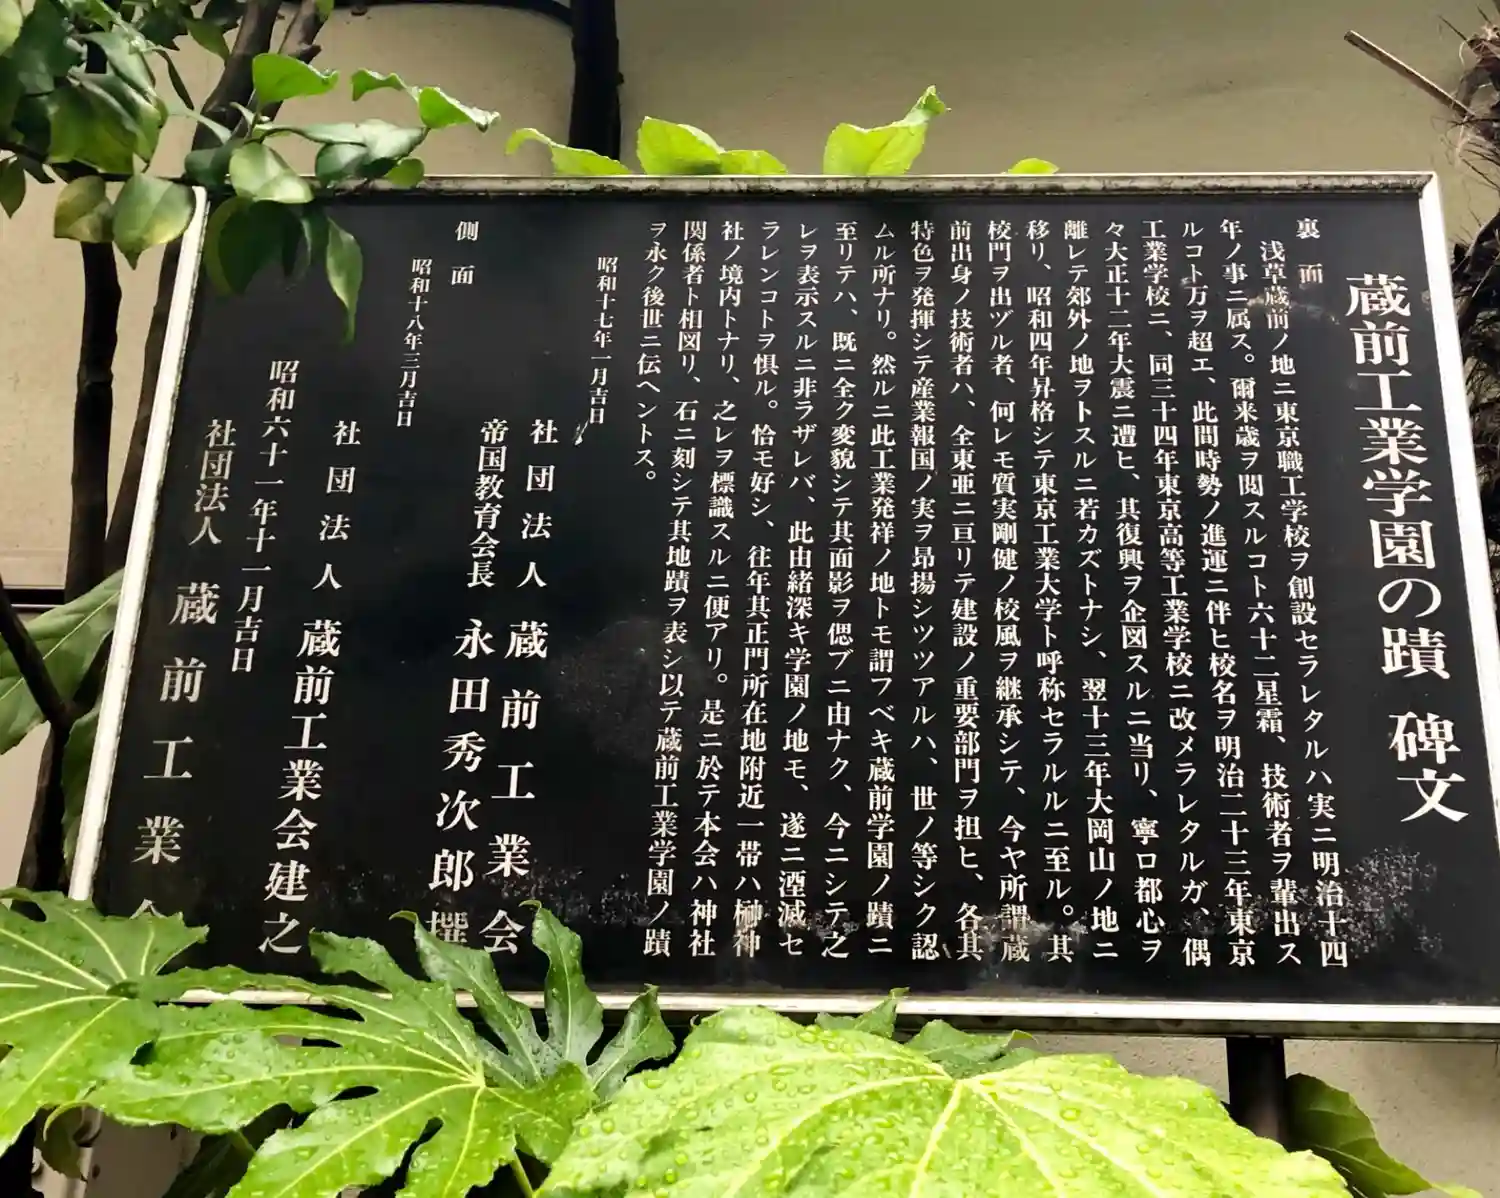 蔵前工業学園の蹟 碑文
裏面
浅草蔵前ノ地ニ東京職工学校ヲ創設セラレタルハ実ニ明治十四
年ノ事ニ属ス。爾来歳ヲ閲スルコト六十二星霜、技術者ヲ輩出ス
ルコト万ヲ超エ、此間時勢ノ進運ニ伴ヒ校名ヲ明治二十三年東京
工業学校ニ、同三十四年東京高等工業学校ニ改メラレタルガ、偶
々大正十二年大震ニ遭ヒ、其復興ヲ企図スルニ当リ、寧ロ都心ヲ
離レテ郊外ノ地ヲトスルニ若カズトナシ、翌十三年大岡山ノ地ニ
移リ、昭和四年昇格シテ東京工業大学ト呼称セラルルニ至ル。其
校門ヲ出ヅル者、何レモ質実剛健ノ校風ヲ継承シテ、今ヤ所謂蔵
前出身ノ技術者ハ、全東亜ニ亘リテ建設ノ重要部門ヲ担ヒ、各其
特色ヲ発揮シテ産業報国ノ実ヲ昂揚シツツアルハ、世ノ等シク認
ムル所ナリ。然ルニ此工業発祥ノ地トモ謂フベキ蔵前学園ノ蹟ニ
至リテハ、既ニ全ク変貌シテ其面影ヲ偲ブニ由ナク、今ニシテ之
レヲ表示スルニ非ラザレバ、此由緒深キ学園ノ地モ、遂ニ湮滅セ
ラレンコトヲ惧ル。恰モ好シ、往年其正門所在地附近一帯ハ榊神
社ノ境内トナリ、之レヲ標識スルニ便アリ。是ニ於テ本会ハ神社
関係者ト相図リ、石ニ刻シテ其地蹟ヲ表シ以テ蔵前工業学園ノ蹟
ヲ永ク後世ニ伝ヘントス。
昭和十七年一月吉日
社団法人 蔵前工業会
帝国教育会長 永田秀次郎撰
側面
昭和十八年三月吉日
社団法人 蔵前工業会建之
昭和六十一年十一月吉日
社団法人 蔵前工業会